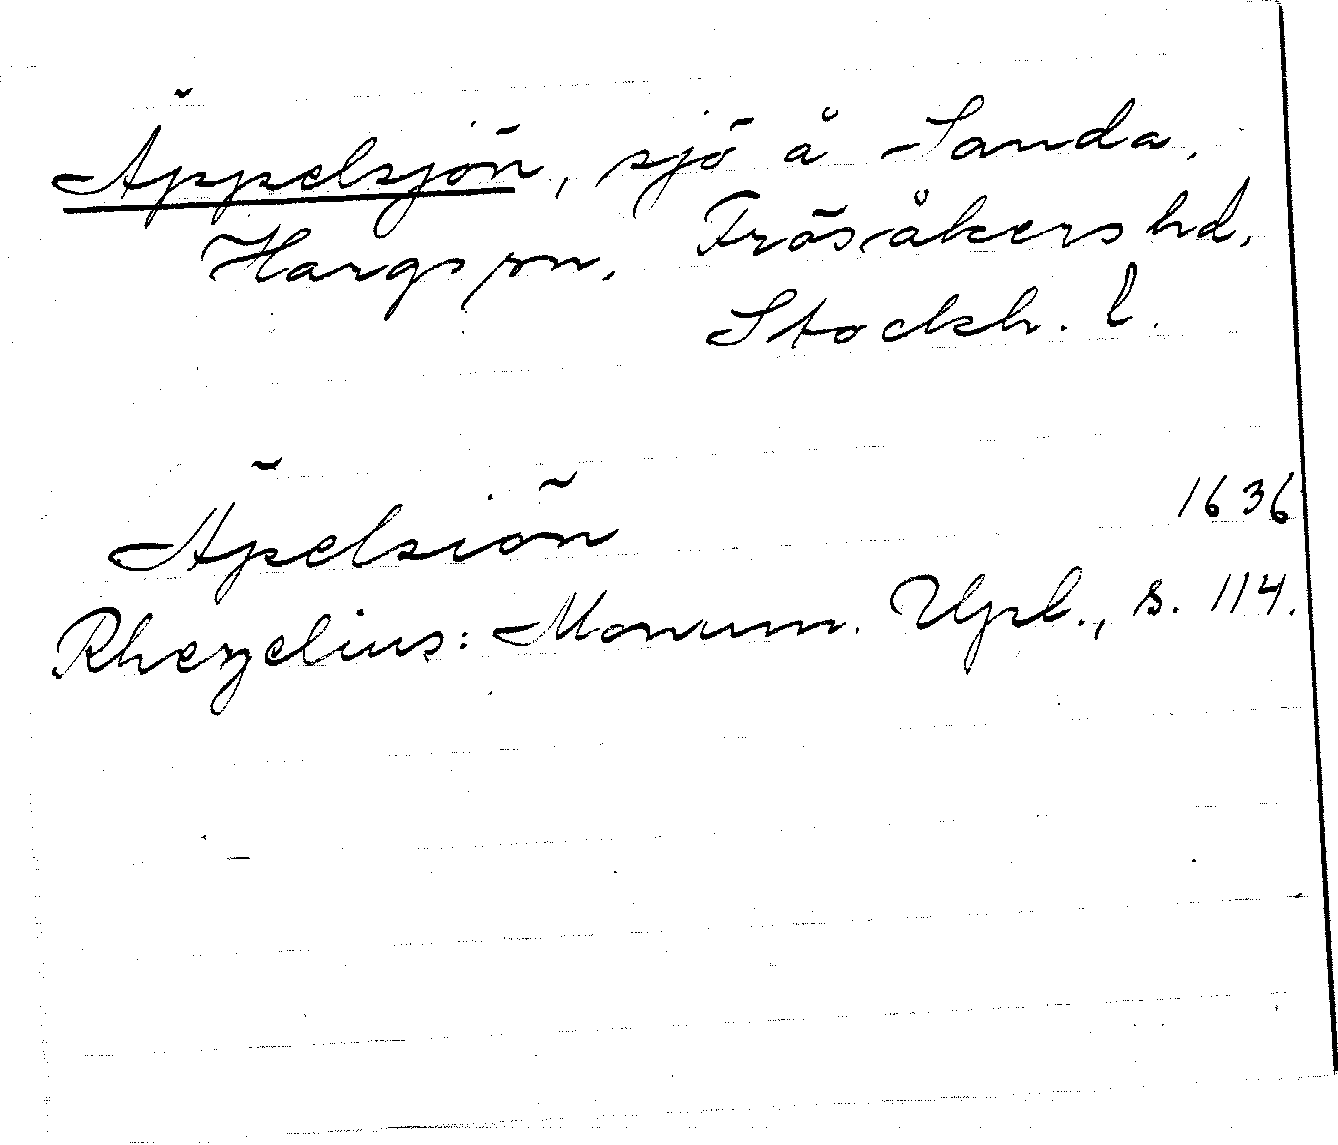 Äppelsjön, sjö å Sanda,
Hargs sn, Frösåkers hd,
Stockh. l.
Äpelsiön 1636
Rhezelius: Monum. Upl., s. 114.